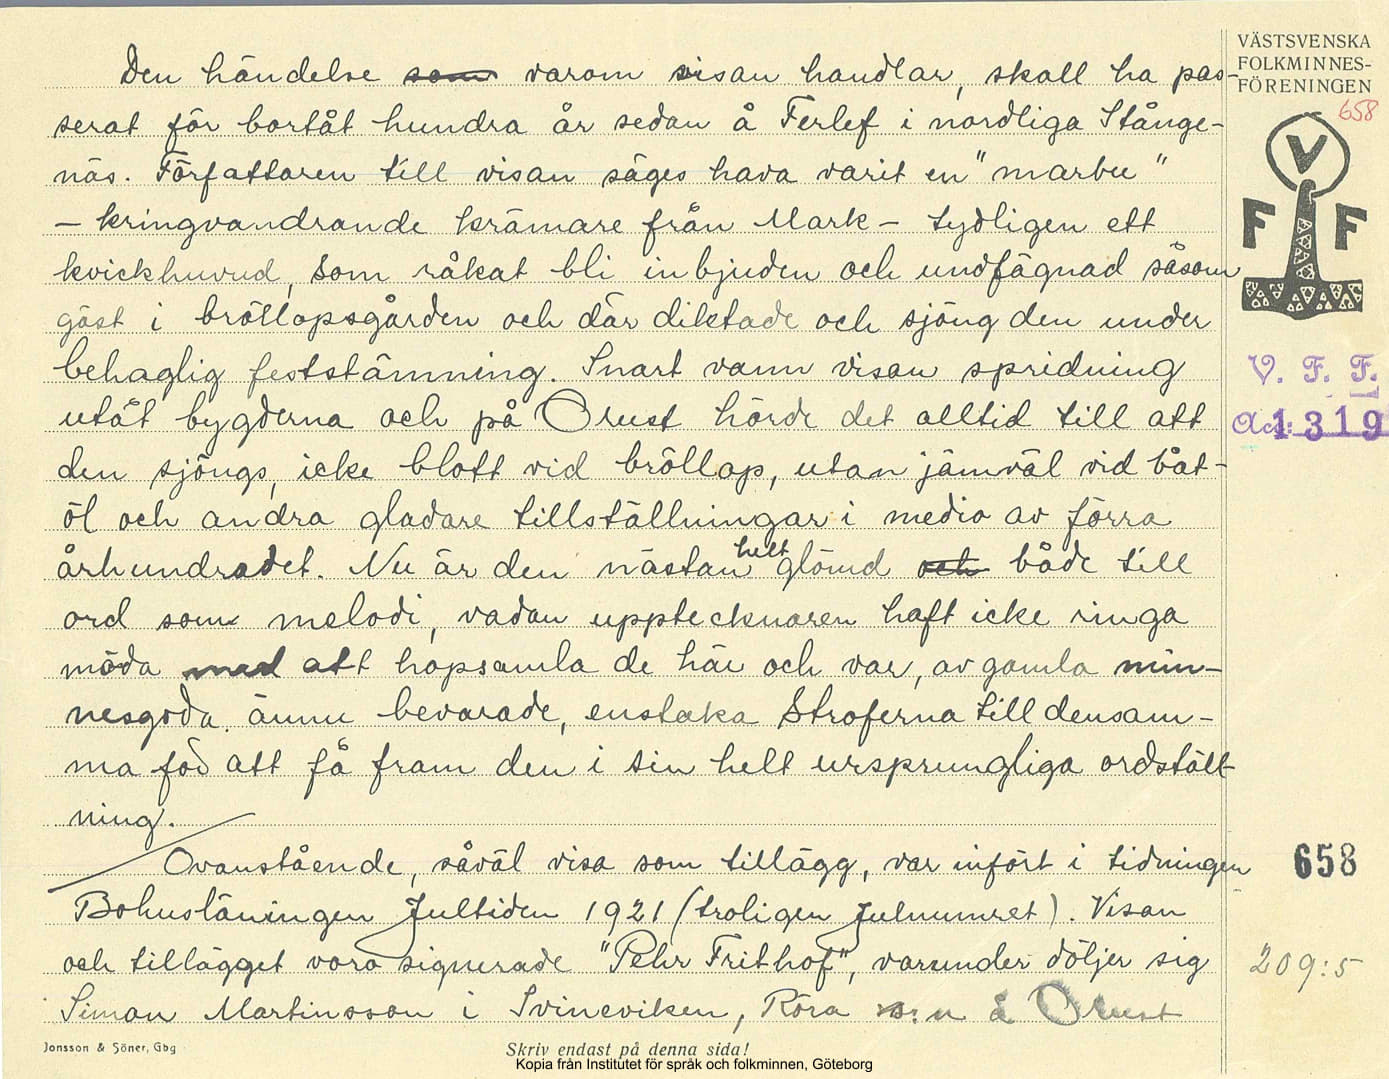 Den händelse som varom visan handlar, skall ha pas-
serat för bortåt hundra år sedan å Ferlef i nordliga Stånge-
näs. Författaren till visan säges hava varit en "marbu"
– kringvandrande krämare från Mark – tydligen ett
kvickhuvud, som råkat bli inbjuden och undfägnad såsom
gäst i bröllopsgården och där diktade och sjöng den under
behaglig feststämning. Snart vann visan spridning
utåt bygderna och på Orust hörde det alltid till att
den sjöngs, icke blott vid bröllop, utan jämväl vid båt-
öl och andra gladare tillställningar i medio av förra
århundradet. Nu är den nästan helt glömd och både till
ord som melodi, vadan upptecknaren haft icke ringa
möda med att hopsamla de här och var, av gamla min-
nesgoda ännu bevarade, enstaka stroferna till densam-
ma för att få fram den i sin helt ursprungliga ordställ-
ning.
Ovanstående, såväl visa som tillägg, var infört i tidningen
Bohusläningen Jultiden 1921 (troligen Julnumret). Visan
och tillägget voro signerade "Pehr Frithof", varunder döljer sig
Simon Martinsson i Svineviken, Röra s:n å Orust
Jonsson & Söner, Gbg
Skriv endast på denna sida!
Kopia från Institutet för språk och folkminnen, Göteborg
VÄSTSVENSKA
FOLKMINNES-
FÖRENINGEN
658
V
F F
V. F. F.
Acc: 1319
658
209:5